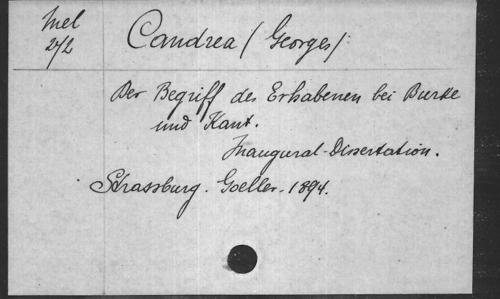 Mel
2/2
Candrea (Georges).
Der Begriff des Erhabenen bei Burke
und Kant.
Inaugural-Dissertation.
Strassburg. Goeller. 1894.